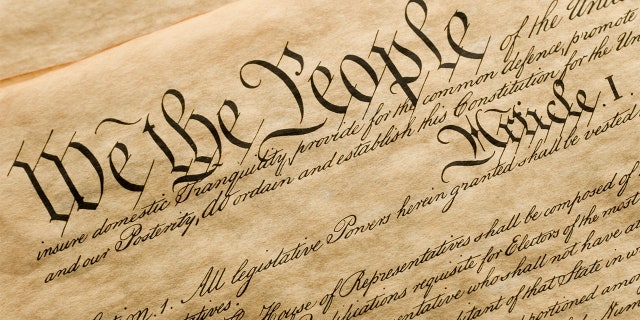 We the People of the Unit
insure domestic Tranquility, provide for the common defence, promote
and our Posterity, do ordain and establish this Constitution for the Un
Article. I.
tion. 1. All legislative Powers herein granted shall be vested
tatives.
House of Representatives shall be composed of
lifications requisite for Electors of the most
sentative who shall not have a
bitant of that State in w
portioned amo
Num